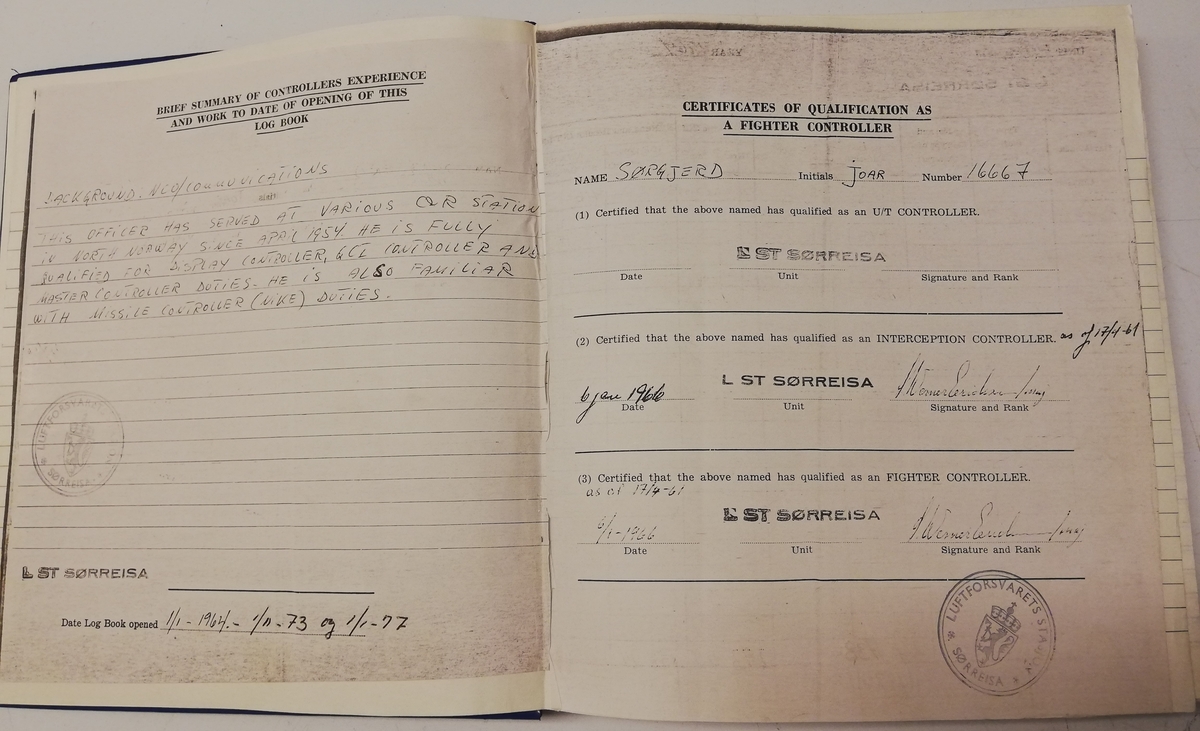 BRIEF SUMMARY OF CONTROLLERS EXPERIENCE
AND WORK TO DATE OF OPENING OF THIS
LOG BOOK
BACKGROUND. NCO/COMMUNICATIONS
THIS OFFICER HAS SERVED AT VARIOUS C&R STATION
IN NORTH NORWAY SINCE APRIL 1954. HE IS FULLY
QUALIFIED FOR DISPLAY CONTROLLER, GCI CONTROLLER AND
MASTER CONTROLLER DUTIES. HE IS ALSO FAMILIAR
WITH MISSILE CONTROLLER (NIKE) DUTIES.
LUFTFORSVARETS
SØRREISA
L ST SØRREISA
Date Log Book opened 1/1 - 1964. - 1/11 - 73 og 1/1 - 77
CERTIFICATES OF QUALIFICATION AS
A FIGHTER CONTROLLER
NAME SØRGJERD Initials JOAR Number 16667
(1) Certified that the above named has qualified as an U/T CONTROLLER.
L ST SØRREISA
Date Unit Signature and Rank
(2) Certified that the above named has qualified as an INTERCEPTION CONTROLLER. as of 17/4-61
6 jan 1966 L ST SØRREISA
Date Unit Signature and Rank
(3) Certified that the above named has qualified as an FIGHTER CONTROLLER.
as of 17/4-61
6/1-1966 L ST SØRREISA
Date Unit Signature and Rank
LUFTFORSVARETS
SØRREISA